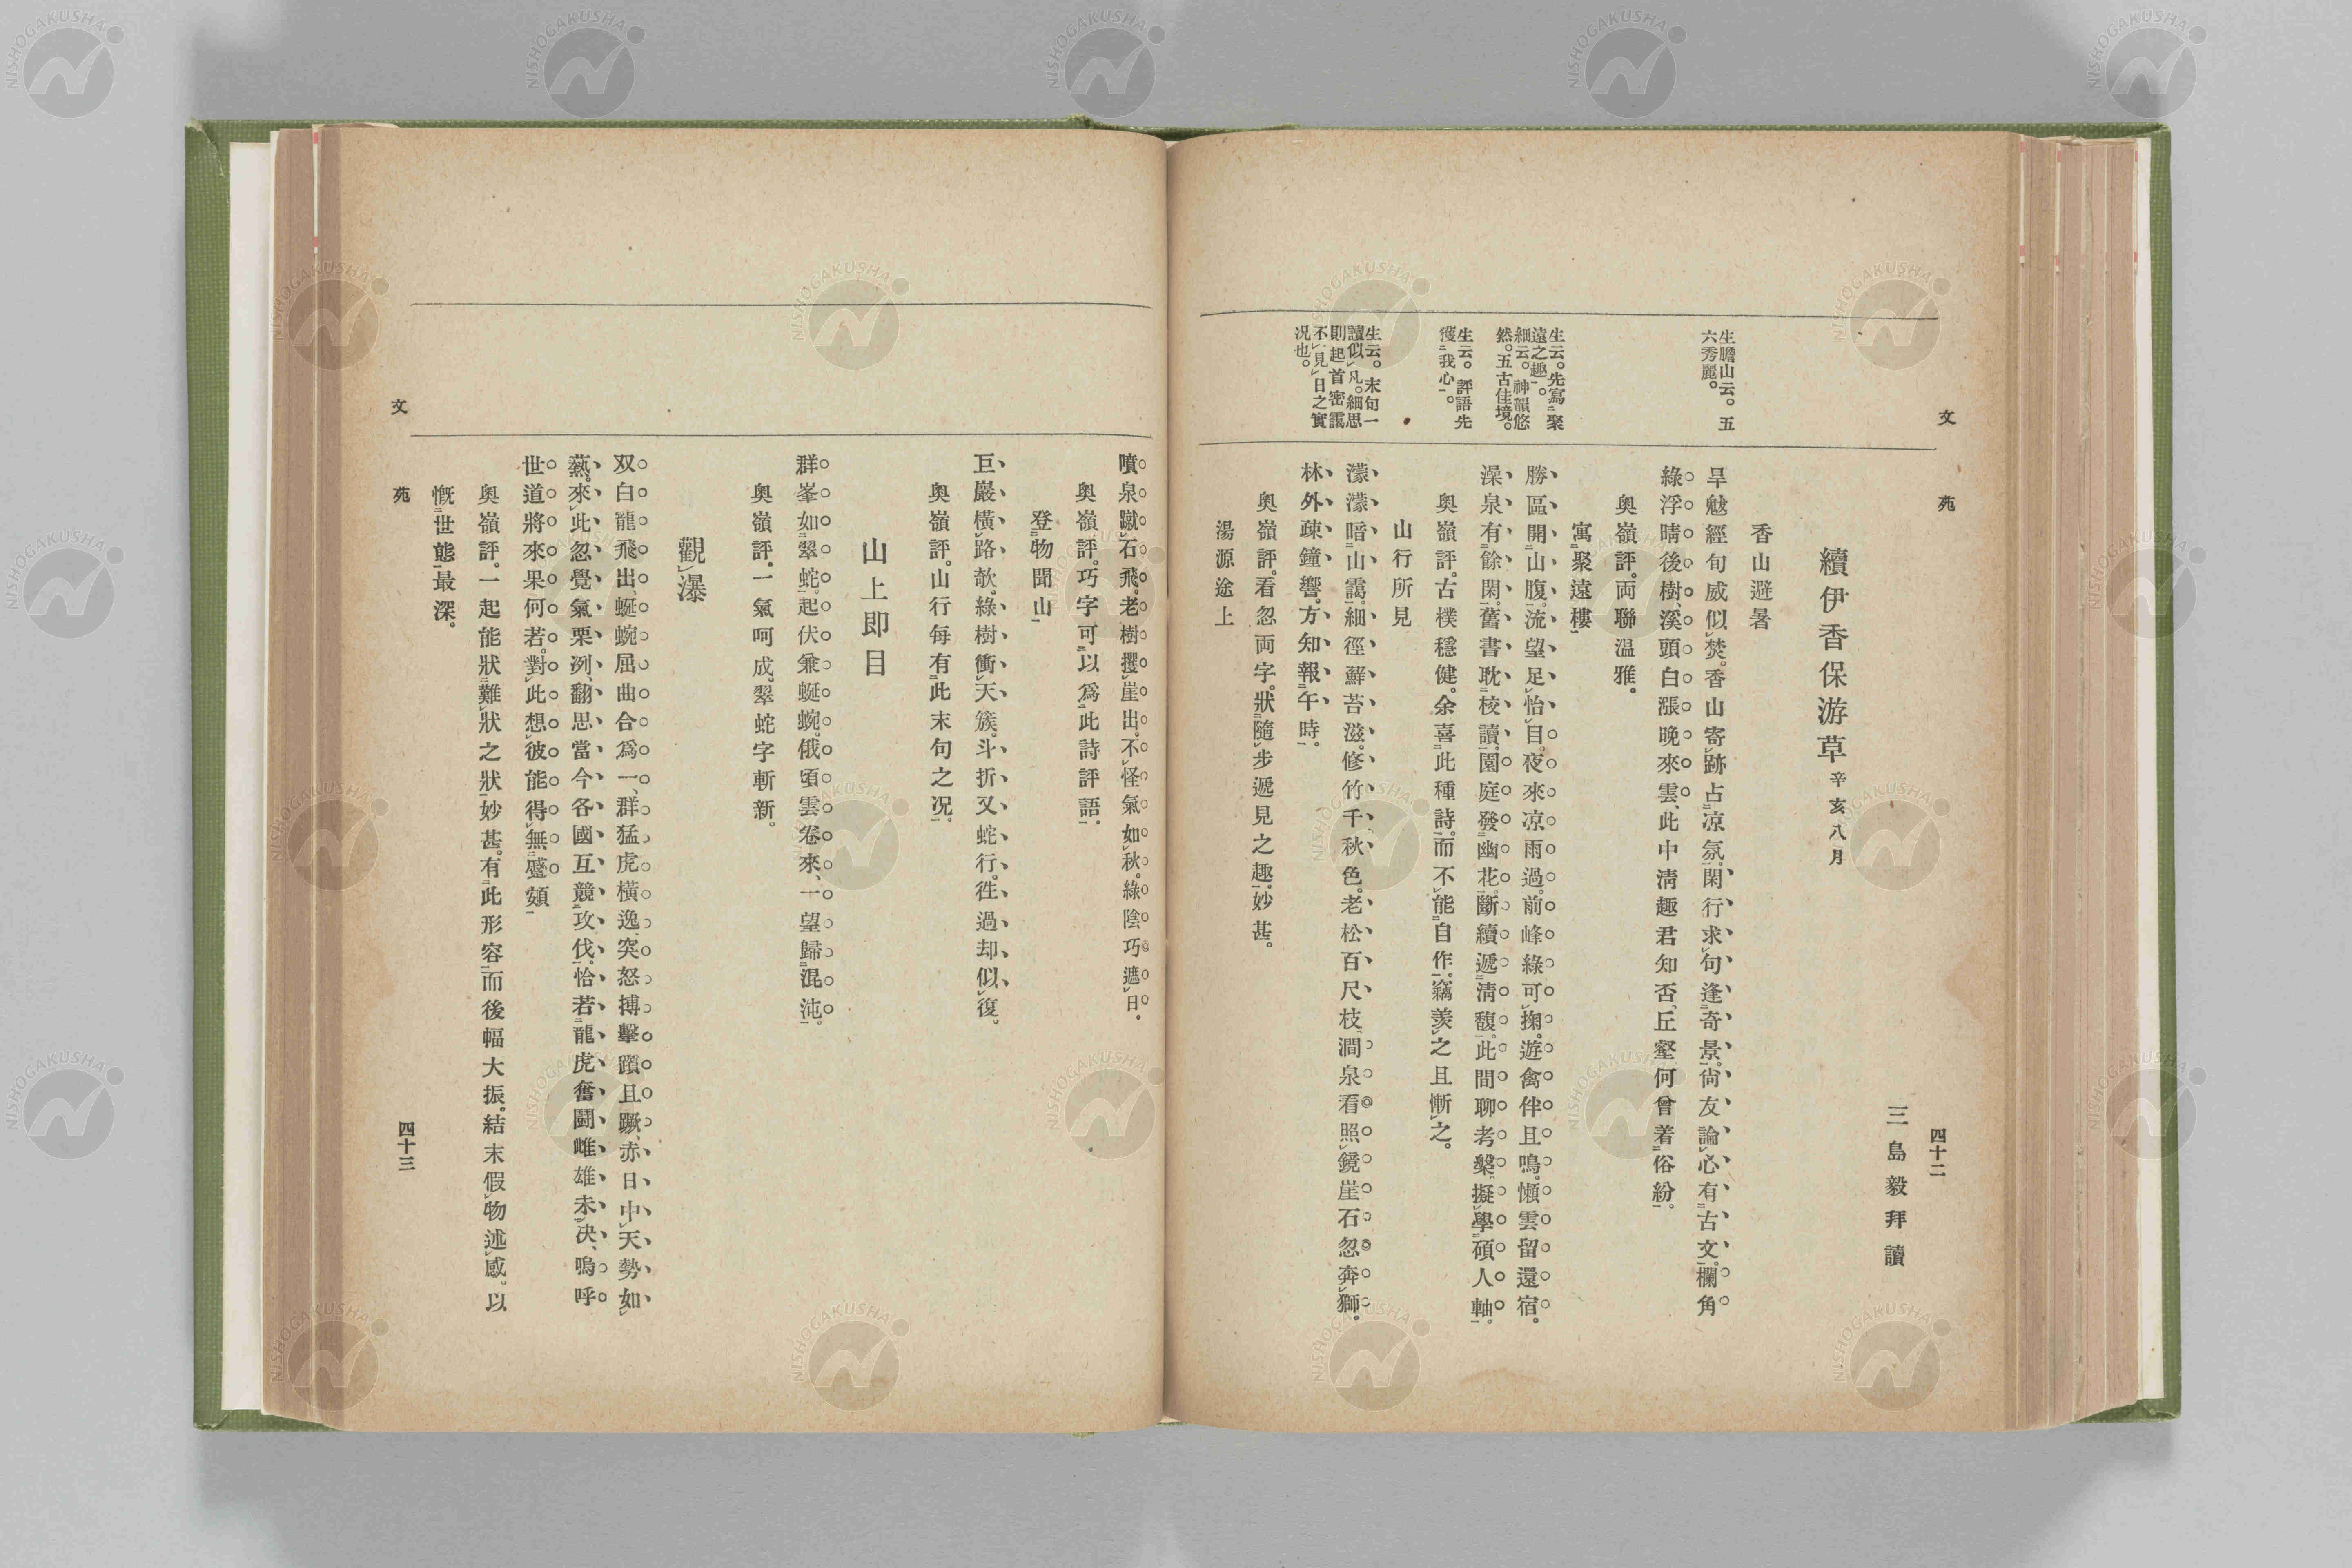 文苑
四十二
三島毅拜讀
續伊香保游草 辛亥八月
香山避暑
旱魃經旬威似焚。香山寄跡占凉氛。閑行求句逢奇景。尙友論心有古文。欄角
綠浮晴後樹、溪頭白漲晚來雲、此中淸趣君知否、丘壑何曾着俗紛。
奧嶺評。両聯温雅。
寓聚遠樓
勝區開山腹。流望足怡目。夜來凉雨過。前峰綠可掬。遊禽伴且鳴。懶雲留還宿。
澡泉有餘閑。舊書耽校讀。園庭發幽花。斷續遞淸馥。此間聊考槃。擬學碩人軸。
奧嶺評。古樸穩健。余喜此種詩。而不能自作。竊羨之且慚之。
山行所見
濛濛暗山靄。細徑蘚苔滋。修竹千秋色。老松百尺枝。澗泉看照鏡崖石忽奔獅。
林外疎鐘響。方知報午時。
奧嶺評。看忽両字。狀隨步遞見之趣。妙甚。
湯源途上
生膽山云。五
六秀麗。
生云。先寫聚
遠之趣。
細云。神韻悠
然。五古佳境。
生云。評語先
獲我心。
生云。末句一
讀似凡。細思
則起首密靄
不見日之實
况也。
噴泉蹴石飛。老樹攫崖出。不怪氣如秋。綠陰巧遮日。
奧嶺評。巧字可以爲此詩評語。
登物聞山
巨巖橫路欹。綠樹衝天簇。斗折又蛇行。徃過却似復。
奧嶺評。山行每有此末句之况。
山上即目
群峯如翠蛇。起伏兼蜒蜿。俄頃雲卷來、一望歸混沌。
奧嶺評。一氣呵成。翠蛇字斬新。
觀瀑
双白龍飛出、蜒蜿屈曲合爲一、群猛虎橫逸、突怒搏擊躓且蹶、赤日中天勢如
爇。來此忽覺氣栗冽、翻思當今各國互競攻伐。恰若龍虎奮鬪雌雄未決、嗚呼
世道將來果何若。對此想彼能得無蹙頞
奧嶺評。一起能狀難狀之狀妙甚。有此形容而後幅大振。結末假物述感。以
慨世態最深。
文苑
四十三